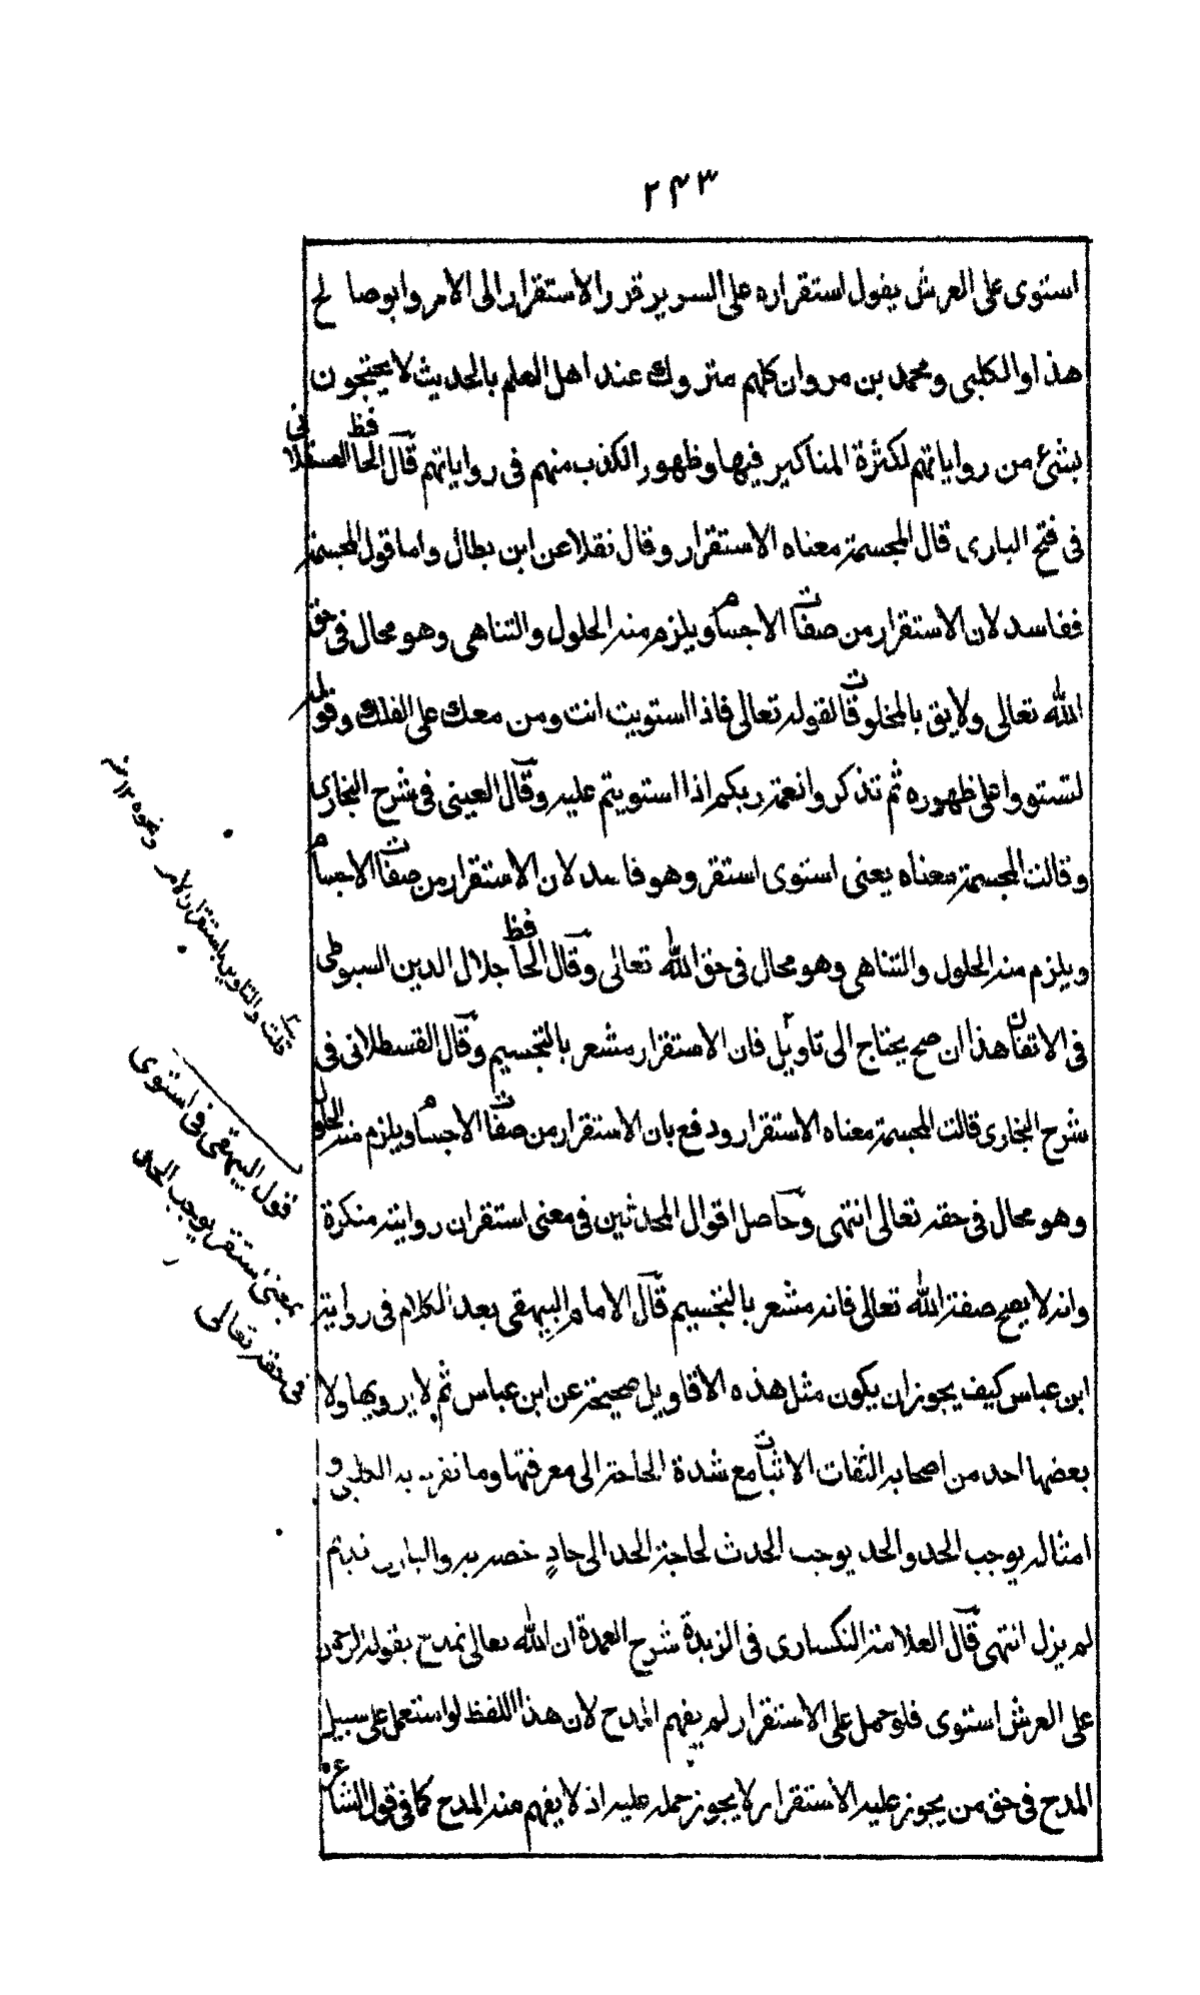 ۲۴۳
استوى على العرش يقول استقراره على السرير قرر الاستقرار الى الامر وابو صالح
هذا والكلبى ومحمد بن مروان كلهم متروك عند اهل العلم بالحديث لا يحتجون
بشئ من رواياتهم لكثرة المناكير فيها وظهور الكذب منهم فى رواياتهم قال الحافظ العسقلانى
فى فتح البارى قال المجسمة معناه الاستقرار وقال نقلا عن ابن بطال واما قول المجسمة
ففاسد لان الاستقرار من صفات الاجسام ويلزم منه الحلول والتناهى وهو محال فى حق
الله تعالى ولايق بالمخلوقات لقوله تعالى فاذا استويت انت ومن معك على الفلك وقوله
لتستووا على ظهوره ثم تذكروا نعمة ربكم اذا استويتم عليه وقال العينى فى شرح البخارى
وقالت المجسمة معناه يعنى استوى استقر وهو فاسد لان الاستقرار من صفات الاجسام
ويلزم منه الحلول والتناهى وهو محال فى حق الله تعالى وقال الحافظ جلال الدين السيوطى
فى الاتقان هذا ان صح يحتاج الى تاويل فان الاستقرار مشعر بالتجسيم وقال القسطلانى فى
شرح البخارى قالت المجسمة معناه الاستقرار ودفع بان الاستقرار من صفات الاجسام ويلزم منه الحلول
وهو محال فى حقه تعالى انتهى وحاصل اقوال المحدثين فى معنى استقر ان روايته منكرة
وانه لا يصح صفة الله تعالى فانه مشعر بالتجسيم قال الامام البيهقى بعد الكلام فى رواية
ابن عباس كيف يجوز ان يكون مثل هذه الاقاويل صحيحة عن ابن عباس ثم لا يرويها ولا
بعضها احد من اصحابه الثقات الاثبات مع شدة الحاجة الى معرفتها وما تفرد به الكلبى و
امثاله يوجب الحد والحد يوجب الحدث لحاجة الحد الى حادٍ خصه به والبارى قديم
لم يزل انتهى قال العلامة النكسارى فى الزبدة شرح العمدة ان الله تعالى تمدح بقوله الرحمن
على العرش استوى فلو حمل على الاستقرار لم يفهم المدح لان هذا اللفظ لو استعمل على سبيل
المدح فى حق من يجوز عليه الاستقرار لا يجوز حمله عليه اذ لا يفهم منه المدح كما فى قول الشاعر
قلت والتاويل باستقرار الامر ونحوه ١٢ منه
قول البيهقى فى استوى
بمعنى استقر يوجب الحد
فى حقه تعالى